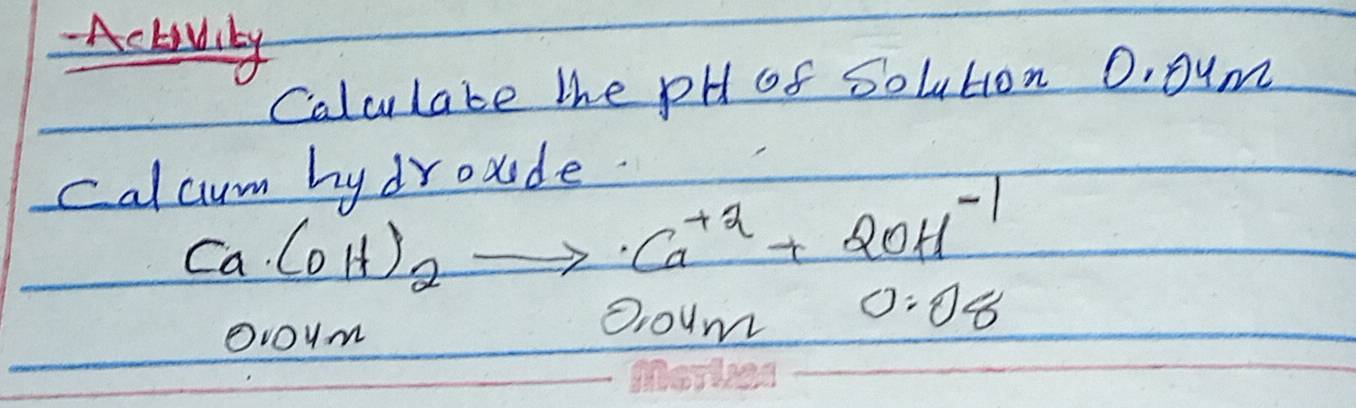 Activity
Calculate the pH of solution 0.04m
Calcium hydroxide.
Ca.(OH)₂ → Ca⁺² + 2OH⁻¹
0.04m 0.04m 0.08